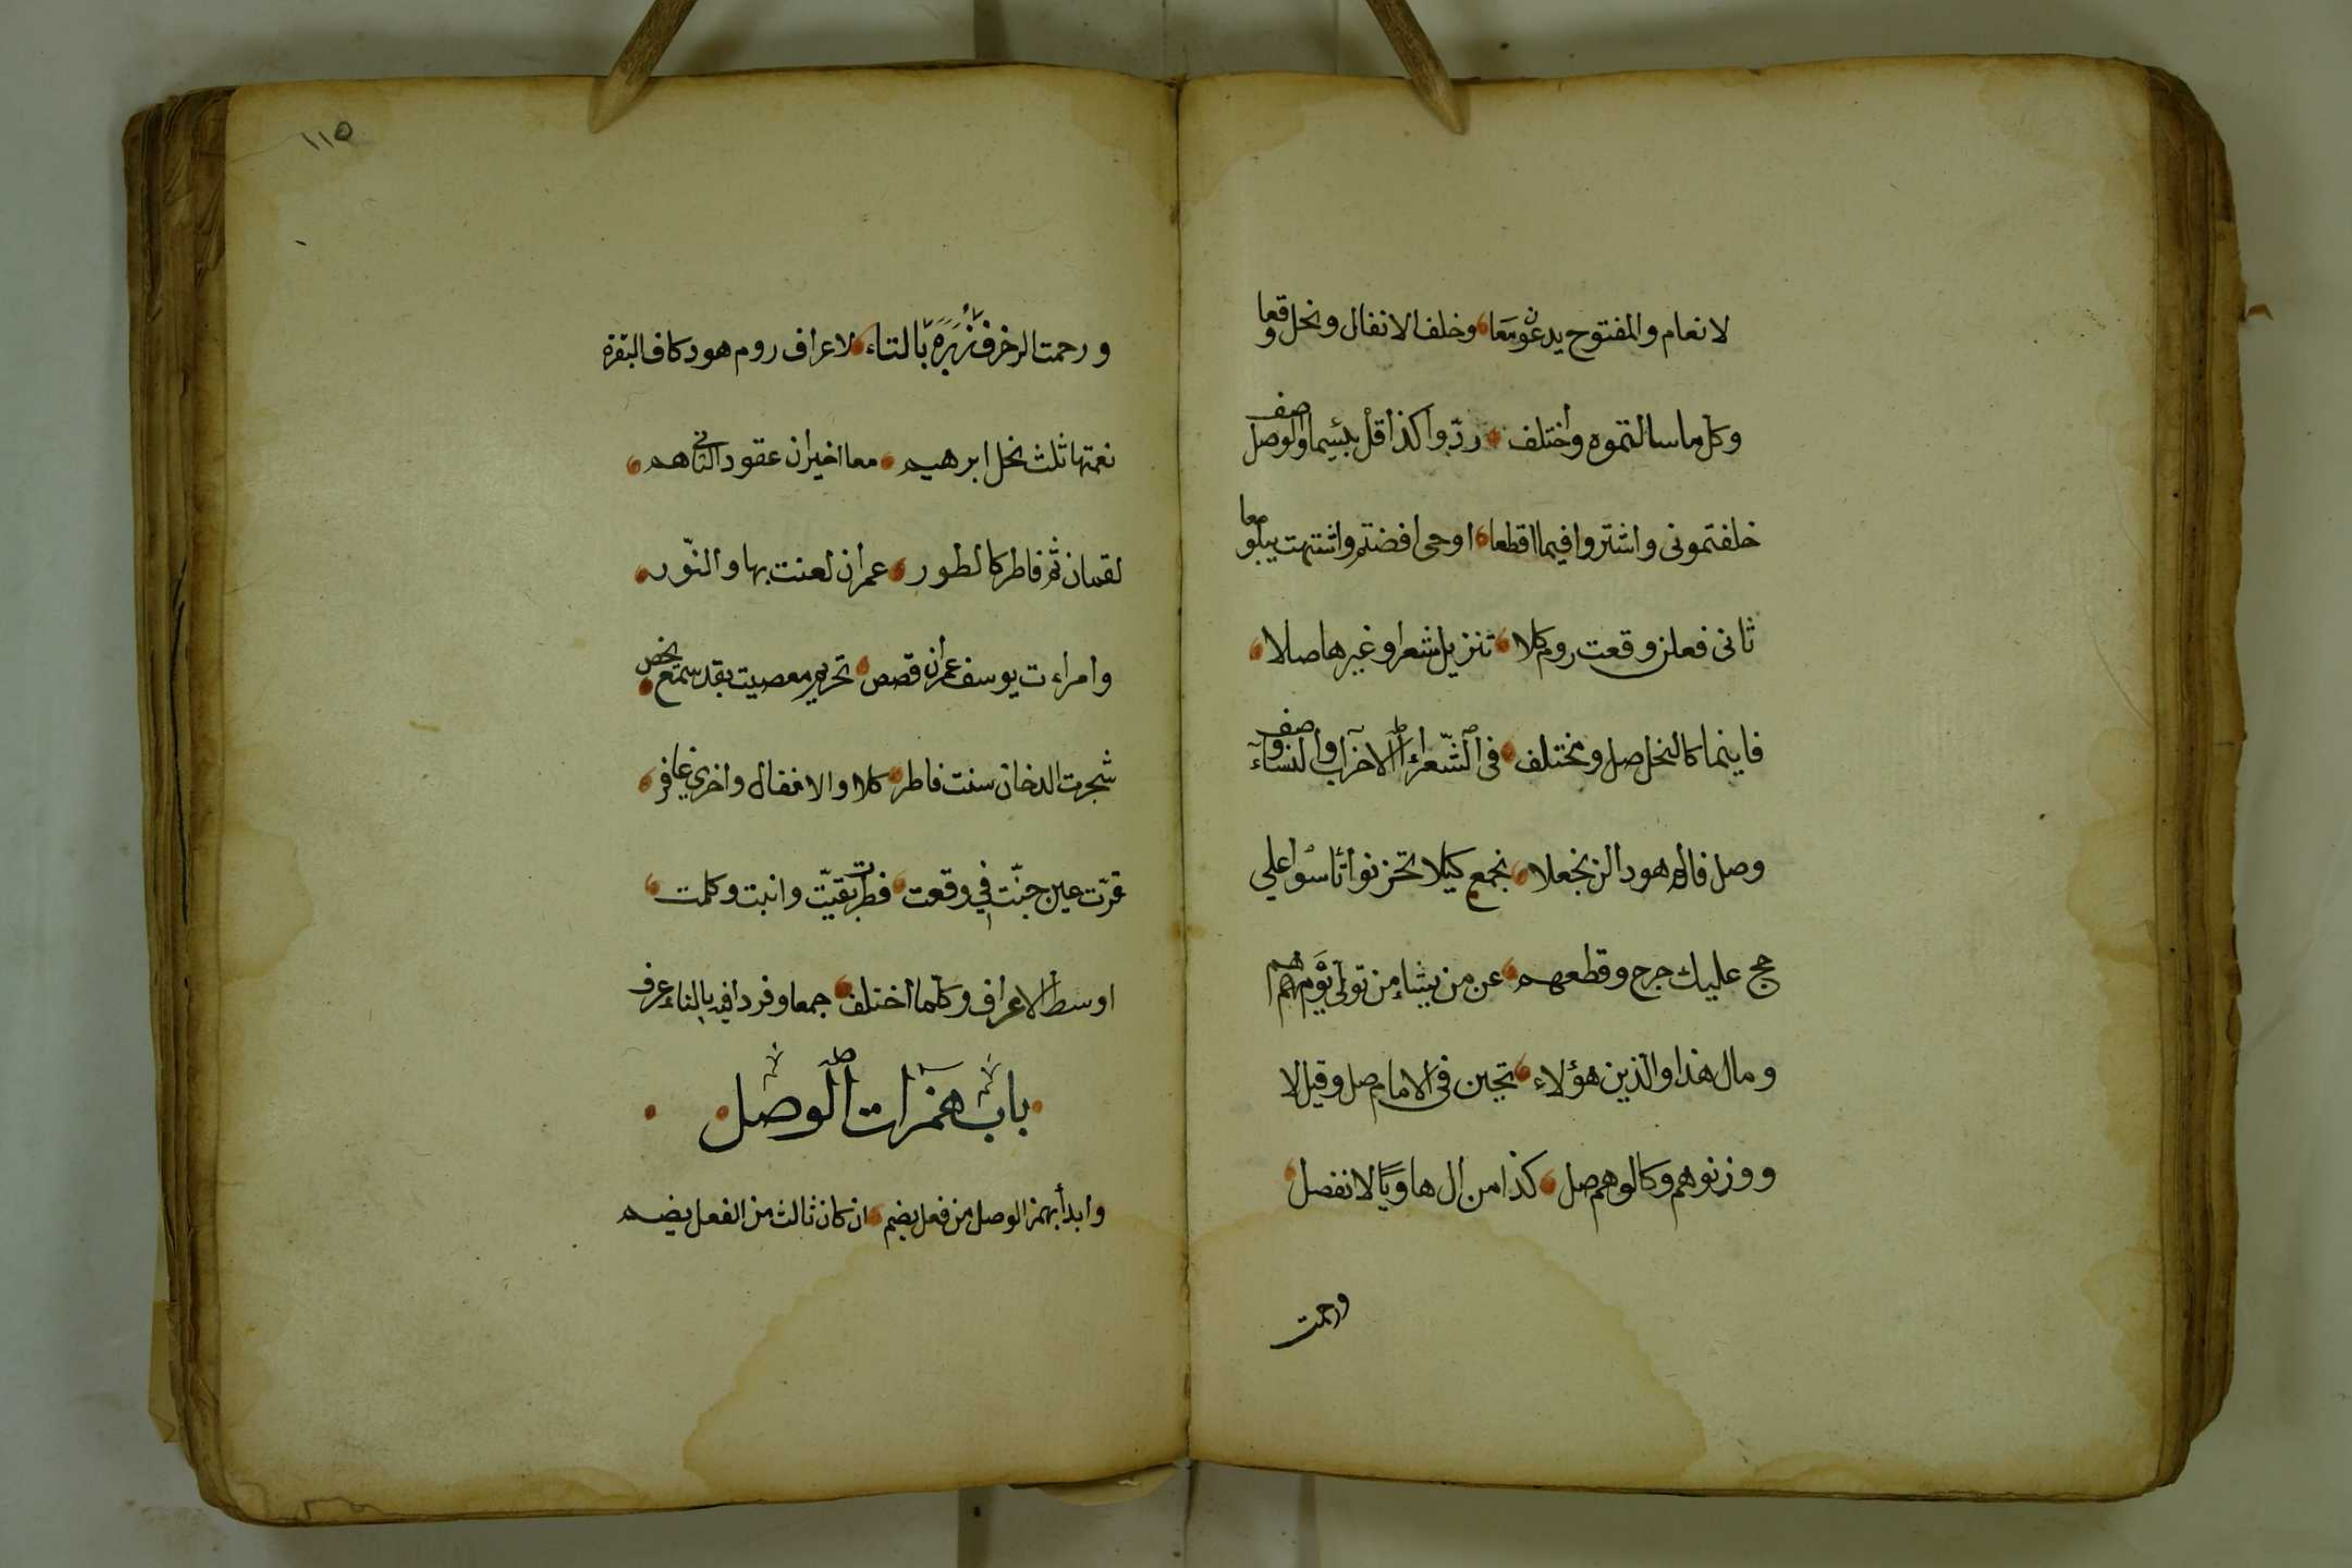 لانعام والمفتوح يدعون معا وخلف الانفال ونحل وقعا
وكل ما سالتموه واختلف ردوا كذا قل بئسما والوصل صف
خلفتمونى واشتروا فيما اقطعا اوحى افضتم واشتهت يبلو معا
ثانى فعلن وقعت روم كلا تنزيل شعرا وغيرها صلا
فاينما كالنحل صل ومختلف فى الشعراء الاحزاب والنساء وصف
وصل فالم هود الن نجعلا نجمع كيلا تحزنوا تأسوا على
حج عليك حرج وقطعهم عن من يشاء من تولى يوم هم
ومال هذا والذين هؤلاء تحين فى الامام صل وقيل لا
ووزنوهم وكالوهم صل كذا من ال ها ويا لا تفصل
ورحمت
١١٥
ورحمت الزخرف زبره بالتاء لاعراف روم هود كاف البقره
نعمتها ثلث نحل ابرهيم معا اخيران عقود الثانى هم
لقمان ثم فاطر كالطور عمران لعنت بها والنور
وامراءت يوسف عمران قصص تحريم معصيت بقد سمع يخص
شجرت الدخان سنت فاطر كلا والانفال واخرى غافر
قرت عين جنت فى وقعت فطرت بقيت وابنت وكلمت
اوسط الاعراف وكلما اختلف جمعا وفردا فيه بالتاء عرف
باب همزات الوصل
وابدأ بهمز الوصل من فعل بضم ان كان ثالث من الفعل يضم